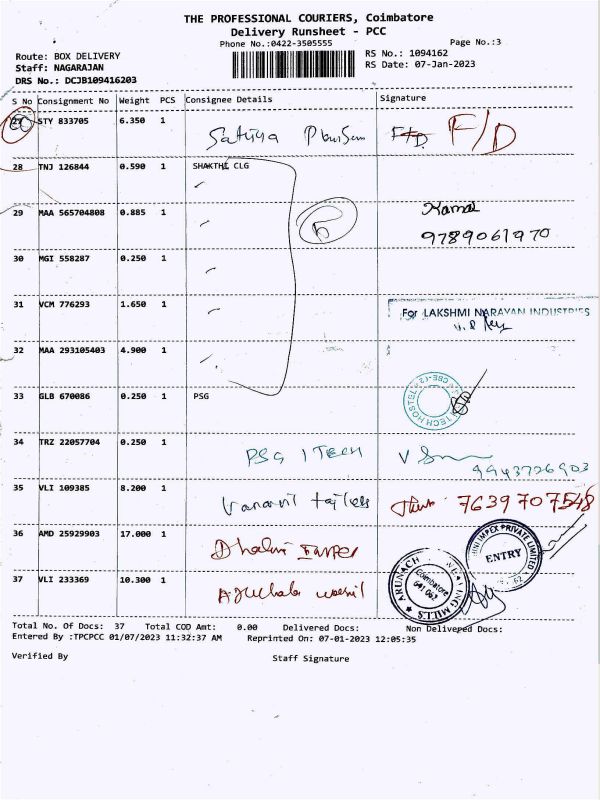 THE PROFESSIONAL COURIERS, Coimbatore
Delivery Runsheet - PCC
Phone No.:0422-3505555
Page No.:3
Route: BOX DELIVERY
Staff: NAGARAJAN
DRS No.: DCJB109416203
RS No.: 1094162
RS Date: 07-Jan-2023
S No Consignment No Weight PCS Consignee Details Signature
27 STY 833705 6.350 1 F/D. F/D
28 TNJ 126844 0.590 1 SHAKTHI CLG
29 MAA 565704808 0.885 1 Kamal
9789061970
30 MGI 558287 0.250 1
31 VCM 776293 1.650 1 For LAKSHMI NARAYAN INDUSTRIES
32 MAA 293105403 4.900 1
33 GLB 670086 0.250 1 PSG
34 TRZ 22057704 0.250 1 PSG ITECH
9943726903
35 VLI 109385 8.200 1 7639707548
36 AMD 25929903 17.000 1 IMPEX PRIVATE LIMITED ENTRY
37 VLI 233369 10.300 1 ARUNACH ING MILLS Coimbatore 641 062
Total No. Of Docs: 37 Total COD Amt: 0.00 Delivered Docs: Non Delivered Docs:
Entered By :TPCPCC 01/07/2023 11:32:37 AM Reprinted On: 07-01-2023 12:05:35
Verified By Staff Signature